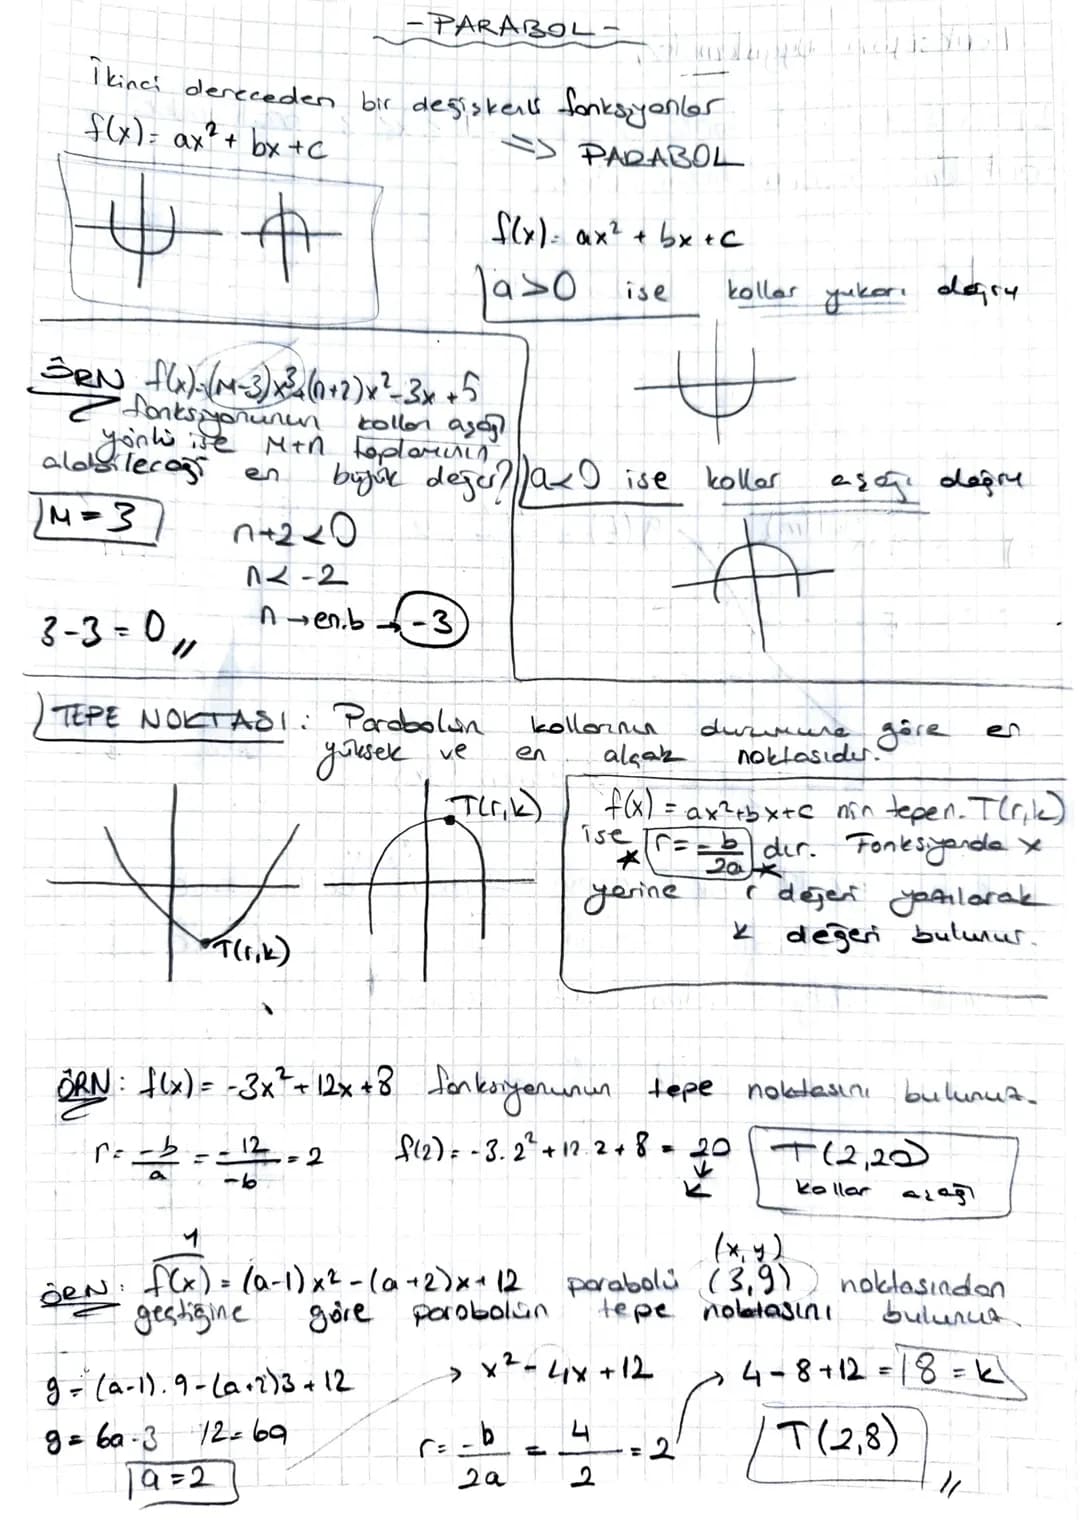 - PARABOL -
İkinci dereceden bir değişkenli fonksiyonlar
f(x) = ax² + bx + c
=> PARABOL
f(x) = ax² + bx + c
a > 0 ise kollar yukarı doğru
ÖRN f(x) = (M-3)x³ + (n+2)x² - 3x + 5
fonksiyonunun kolları aşağı
yönlü ise M+n toplamının
alabileceği en büyük değer?
M = 3
n+2 < 0
n < -2
n → en.b → -3
3-3 = 0 //
a < 0 ise kollar aşağı doğru
TEPE NOKTASI : Parabolün kollarının durumuna göre en
yüksek ve en alçak noktasıdır.
T(r,k)
T(r,k)
f(x) = ax²+bx+c nin tepe n. T(r,k)
ise r = -b/2a dır. Fonksiyonda x
yerine r değeri yazılarak
k değeri bulunur.
ÖRN : f(x) = -3x² + 12x + 8 fonksiyonunun tepe noktasını bulunuz.
r = -b/a = -12/-6 = 2
f(2) = -3.2² + 12.2 + 8 = 20
k
T(2,20)
kollar aşağı
y
(x,y)
ÖRN : f(x) = (a-1)x² - (a+2)x + 12 parabolü (3,9) noktasından
geçtiğine göre parabolün tepe noktasını bulunuz.
9 = (a-1).9 - (a+2)3 + 12
→ x² - 4x + 12
→ 4 - 8 + 12 = 8 = k
9 = 6a - 3 12 = 6a
a = 2
r = -b/2a = 4/2 = 2
T(2,8) //